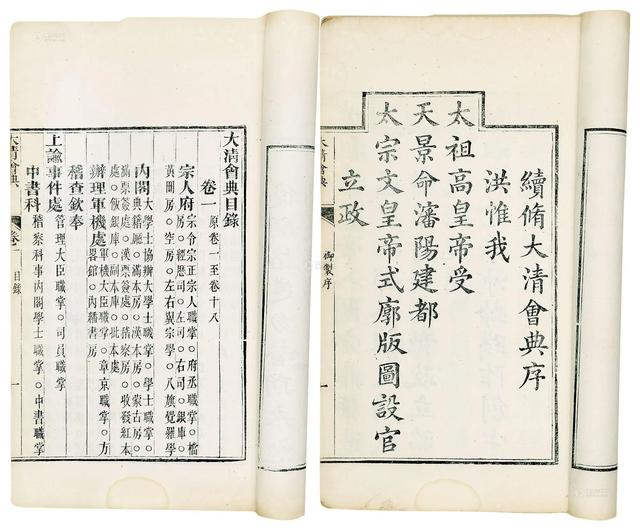 續脩大清會典序
洪惟我
太祖高皇帝受
天景命瀋陽建都
太宗文皇帝式廓版圖設官
立政
大清會典
御製序
大清會典目錄
卷一 原卷一至卷十八
宗人府 宗令宗正宗人職掌。府丞職掌。檔
房。經歷司。左司。右司。銀庫。
黃冊房。空房。左右翼宗學。八旗覺羅學
內閣 大學士協辦大學士職掌。學士職掌。
典籍廳。滿本房。漢本房。蒙古房。
滿票簽處。漢票簽處。稽察房。收發紅本
處。飯銀庫。副本庫。批本處
辦理軍機處 軍機大臣職掌。章京職掌。方
畧館。內繙書房
稽查欽奉
上諭事件處 管理大臣職掌。司員職掌
中書科 稽察科事內閣學士職掌。中書職掌
大清會典
卷一
目錄
一